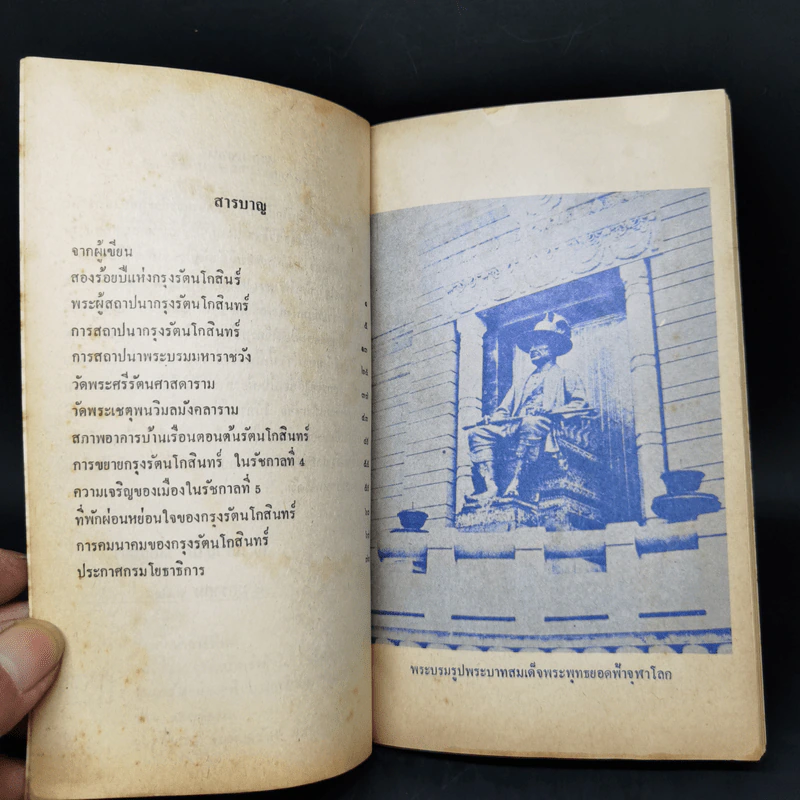 สารบาญ
จากผู้เขียน
สองร้อยปีแห่งกรุงรัตนโกสินร์
พระผู้สถาปนากรุงรัตนโกสินทร์
การสถาปนากรุงรัตนโกสินทร์
การสถาปนาพระบรมมหาราชวัง
วัดพระศรีรัตนศาสดาราม
วัดพระเชตุพนวิมลมังคลาราม
สภาพอาคารบ้านเรือนตอนต้นรัตนโกสินทร์
การขยายกรุงรัตนโกสินทร์ ในรัชกาลที่ 4
ความเจริญของเมืองในรัชกาลที่ 5
ที่พักผ่อนหย่อนใจของกรุงรัตนโกสินทร์
การคมนาคมของกรุงรัตนโกสินทร์
ประกาศกรมโยธาธิการ
พระบรมรูปพระบาทสมเด็จพระพุทธยอดฟ้าจุฬาโลก